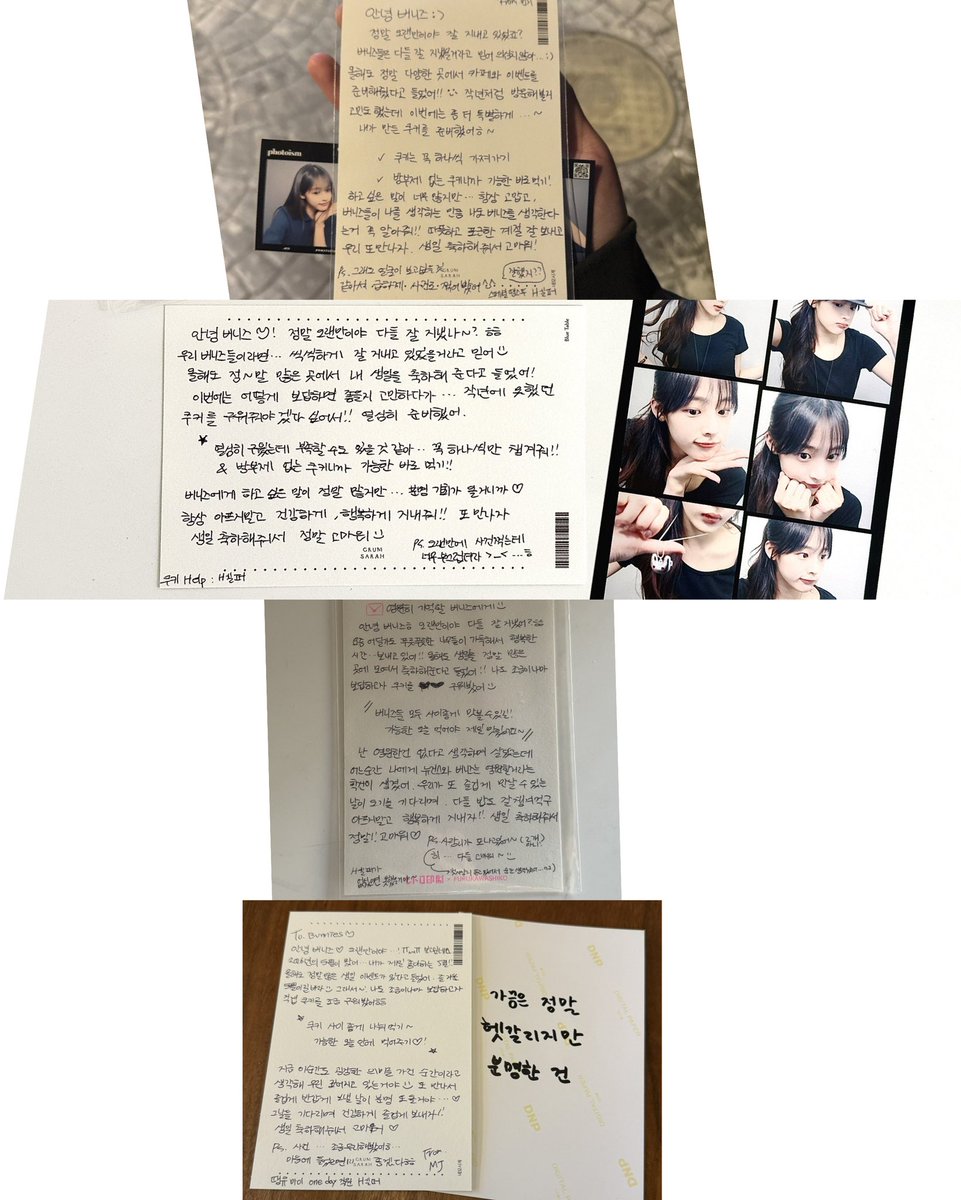 안녕 버니즈 :)
정말 오랜만이야 잘 지내고 있었죠?
버니즈들은 다들 잘 지냈을거라고 믿어 의심치 않아...:)
올해도 정말 다양한 곳에서 카페와 이벤트를
준비해줬다고 들었어!! 작년처럼 방문해볼지
고민도 했는데 이번에는 좀 더 특별하게 ... ~
내가 만든 쿠키를 준비했어ㅎ~
✓ 쿠키는 꼭 하나씩 가져가기
✓ 방부제 없는 쿠키니까 가능한 바로 먹기!
하고 싶은 말이 너무 많지만... 항상 고맙고,
버니즈들이 나를 생각하는 만큼 나도 버니즈를 생각한다
는거 꼭 알아줘!! 따뜻하고 포근한 계절 잘 보내고
우리 또 만나자. 생일 축하해줘서 고마워!
Ps. 그래도 얼굴이 보고싶을 것
같아서 급하게 사진도 찍어봤어
잘했지??
GRUM
SARAH
photoism
안녕 버니즈 ♡! 정말 오랜만이야 다들 잘 지냈나~? ㅎㅎ
우리 버니즈들이라면... 씩씩하게 잘 지내고 있었을거라고 믿어
올해도 정~말 많은 곳에서 내 생일을 축하해 준다고 들었어!
이번에는 어떻게 보답하면 좋을지 고민하다가 ... 작년에 못했던
쿠키를 구워줘야 겠다 싶어서!! 열심히 준비했어.
★ 열심히 구웠는데 부족할 수도 있을 것 같아.. 꼭 하나씩만 챙겨줘!!
& 방부제 없는 쿠키니까 가능한 바로 먹기!!
버니즈에게 하고 싶은 말이 정말 많지만... 분명 기회가 올거니까 ♡
항상 아프지말고 건강하게, 행복하게 지내줘!! 또 만나자
생일 축하해줘서 정말 고마워
Ps. 오랜만에 사진찍는데
너무 쑥스럽더라 >_< ...ㅎ
GRUM
SARAH
Blue Table
쿠키 Help : H실퍼
영원히 기억할 버니즈에게
안녕 버니즈ㅎ 오랜만이야 다들 잘 지냈어?ㅎㅎ
요즘 어딜가도 푸릇푸릇한 나무들이 가득해서 행복한
시간... 보내고 있어!! 올해도 생일을 정말 많은
곳에 모여서 축하해준다고 들었어!! 나도 조금이나마
보답하고자 쿠키를 구워봤어
버니즈들 모두 사이좋게 맛볼 수 있길!
가능한 오늘 먹어야 제일 맛있대~
난 영원한건 없다고 생각하며 살았는데
어느순간 나에게 뉴진스와 버니즈는 영원할거라는
확신이 생겼어. 우리가 또 즐겁게 만날 수 있는
날이 오기를 기다리며. 다들 밥도 잘 챙겨먹구
아프지말고 행복하게 지내자!! 생일 축하해줘서
정말!! 고마워♡
히 ... 다들 고마워~
FURUKAWASHIKO
To. Bunnies ♡
안녕 버니즈 ♡ 오랜만이야..!
올해도 정말 많은 생일 이벤트가 있다고 들었어.
그래서~! 나도 조금이나마 보답하고자
쿠키를 조금 구워봤어ㅎㅎ
★ 쿠키 사이 좋게 나눠 먹기~
가능한 오늘 안에 먹어주기♡!
지금 이순간도 굉장한 의미를 가진 순간이라고
생각해 우린 꼬여지고 있는거야 또 만나서
즐겁게 반갑게 보낼 날이 분명 또 올거야... ♡
그날을 기다리며 건강하게 즐겁게 보내자!!
생일 축하해줘서 고마워 ♡
From
MJ
GRUM
SARAH
one day 직원 H실퍼
DNP
가끔은 정말
헷갈리지만
분명한 건